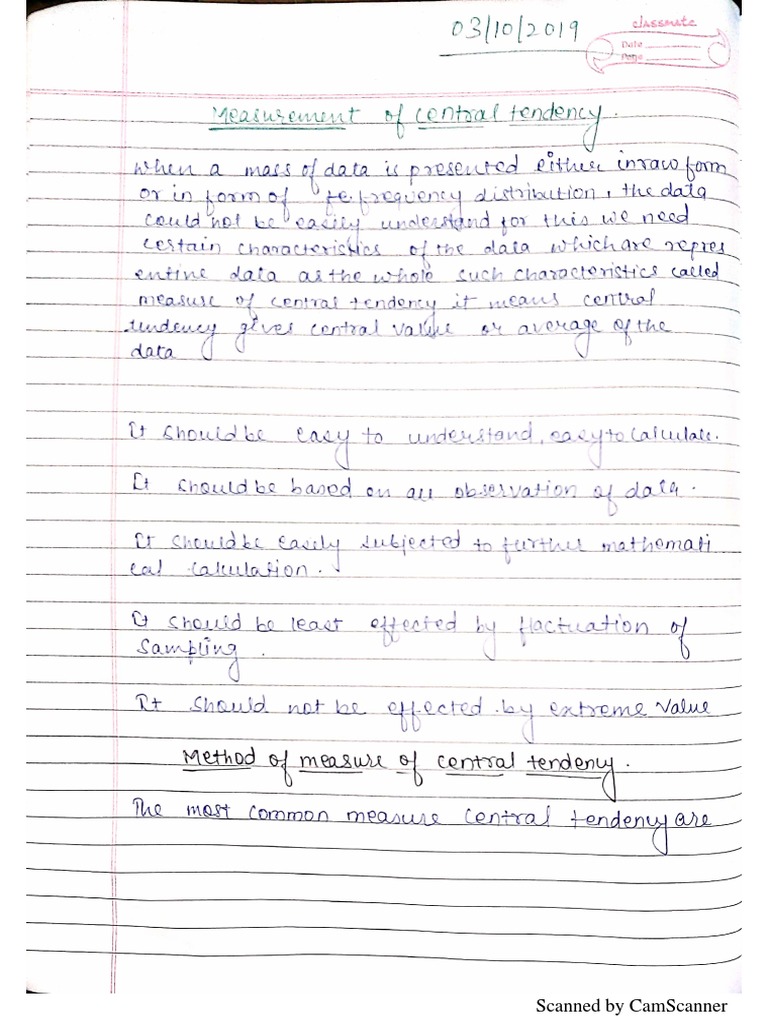 03/10/2019
classmate
Date
Page
Measurement of central tendency.
when a mass of data is presented either in raw form
or in form of fe frequency distribution, the data
could not be easily understand for this we need
certain characteristics of the data which are repres
entine data as the whole such characteristics called
measure of central tendency it means central
tendency gives central value or average of the
data
It should be easy to understand, easy to calculate.
It should be based on all observation of data.
It should be easily subjected to further mathemati
cal calculation.
It should be least effected by flactuation of
Sampling.
It should not be effected by extreme value
Method of measure of central tendency.
The most common measure central tendency are
Scanned by CamScanner